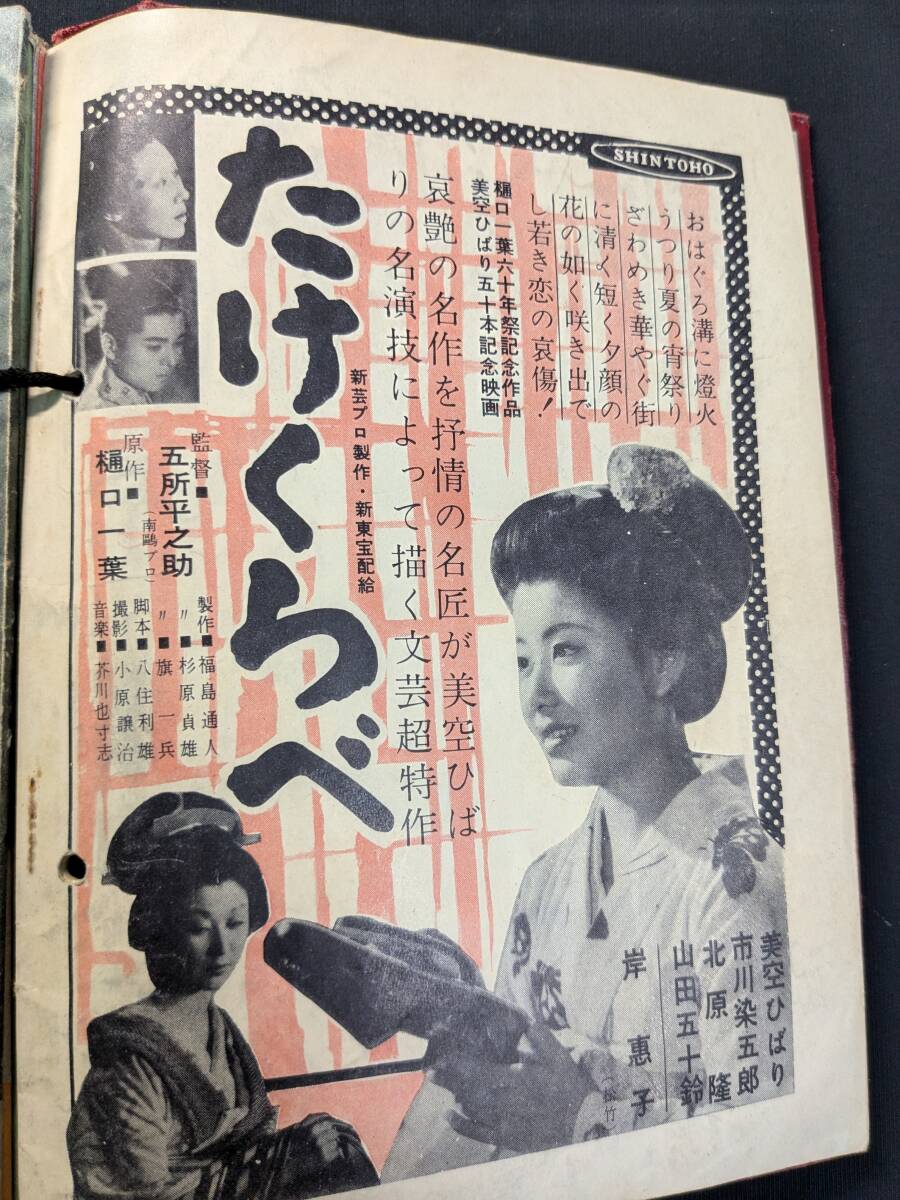 SHINTOHO
おはぐろ溝に燈火
うつり夏の宵祭り
ざわめき華やぐ街
に清く短く夕顔の
花の如く咲き出で
し若き恋の哀傷!
樋口一葉六十年祭記念作品
美空ひばり五十本記念映画
哀艶の名作を抒情の名匠が美空ひば
りの名演技によって描く文芸超特作
新芸プロ製作・新東宝配給
たけくらべ
監督■五所平之助
(南鷗プロ)
原作■樋口一葉
製作■福島通人
〃■杉原貞雄
〃■旗一兵
脚本■八住利雄
撮影■小原譲治
音楽■芥川也寸志
美空ひばり
市川染五郎
北原隆
山田五十鈴
岸惠子
(松竹)